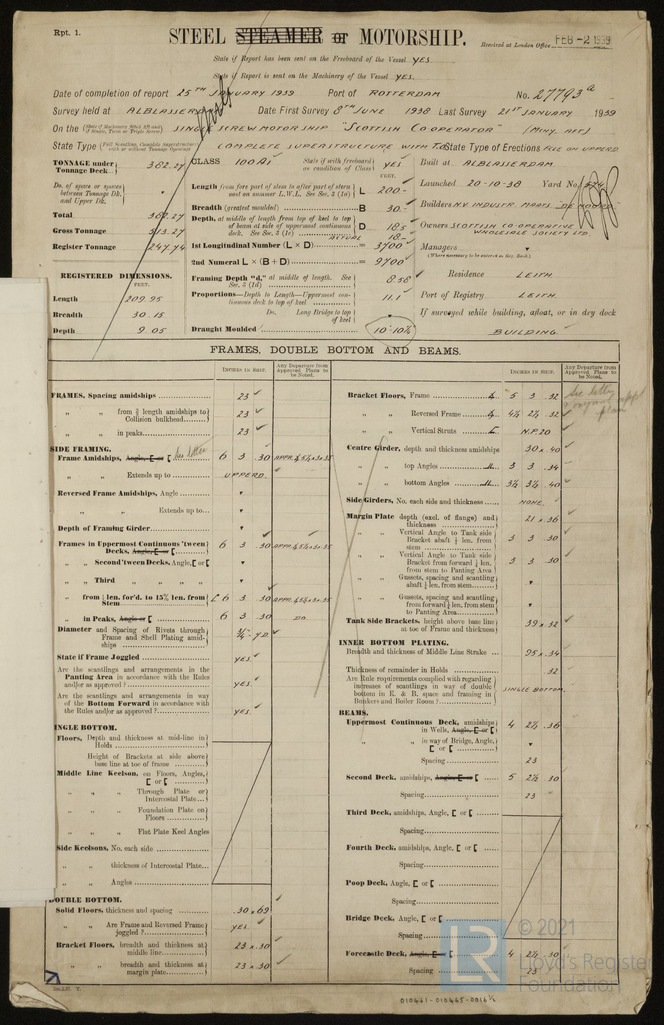 Rpt. 1.
STEEL STEAMER or MOTORSHIP.
Received at London Office FEB -2 1939
State if Report has been sent on the Freeboard of the Vessel YES
State if Report is sent on the Machinery of the Vessel YES.
Date of completion of report 25TH JANUARY 1939 Port of ROTTERDAM No. 27793a
Survey held at ALBLASSERDAM Date First Survey 8TH JUNE 1938 Last Survey 21ST JANUARY 1939
On the SINGLE SCREW MOTORSHIP "SCOTTISH CO-OPERATOR" (MCHY. AFT)
State Type COMPLETE SUPERSTRUCTURE WITH State Type of Erections
TONNAGE under Tonnage Deck 362.27
Do. of space or spaces between Tonnage Dk. and Upper Dk.
Total 362.27
Gross Tonnage 513.27
Register Tonnage 247.74
REGISTERED DIMENSIONS.
FEET.
Length 209.95
Breadth 30.15
Depth 9.05
CLASS 100A1 State if with freeboard as condition of Class YES
FEET.
Length from fore part of stem to after part of stern post on summer L.W.L. See Sec. 3 (1a) L 200-
Breadth (greatest moulded) B 30.-
Depth, at middle of length from top of keel to top of beam at side of uppermost continuous deck. See Sec. 3 (1c) D 18.5
ACTUAL 18.-
1st Longitudinal Number (L × D) = 3700
2nd Numeral L × (B + D) = 9700
Framing Depth "d," at middle of length. See Sec. 3 (1d) 8.58
Proportions—Depth to Length—Uppermost continuous deck to top of keel 11.1
Do. Long Bridge to top of keel
Draught Moulded 10'-10⅝
Built at ALBLASSERDAM.
Launched 20-10-38 Yard No.
Builders N.V. INDUSTR. MAATS. "DE NOORD"
Owners SCOTTISH CO-OPERATIVE WHOLESALE SOCIETY LTD.
Managers
(Where necessary to be entered in Reg. Book.)
Residence LEITH.
Port of Registry LEITH.
If surveyed while building, afloat, or in dry dock
BUILDING.
FRAMES, DOUBLE BOTTOM AND BEAMS.
INCHES IN SHIP.
Any Departure from Approved Plans to be Noted.
FRAMES, Spacing amidships 23
" " from ⅕ length amidships to Collision bulkhead 23
" " in peaks 23
SIDE FRAMING.
Frame Amidships, Angle, E or [ See letter 6 3 .30
" " Extends up to UPPER D.
Reversed Frame Amidships, Angle
" " Extends up to
Depth of Framing Girder
Frames in Uppermost Continuous 'Tween Decks, Angle, E or [ 6 3 .30
" " Second 'Tween Decks, Angle, E or [
" " Third " " " "
" from ⅕ len. for'd. to 15% len. from Stem 6 3 .30
" in Peaks, Angle or [ 6 3 .30 DO
Diameter and Spacing of Rivets through Frame and Shell Plating amidships ¾" 7D
State if Frame Joggled YES
Are the scantlings and arrangements in the Panting Area in accordance with the Rules and/or as approved? YES.
Are the scantlings and arrangements in way of the Bottom Forward in accordance with the Rules and/or as approved? YES.
INGLE BOTTOM.
Floors, Depth and thickness at mid-line in Holds
Height of Brackets at side above base line at toe of frame
Middle Line Keelson, on Floors, Angles, E or [
" " Through Plate or Intercostal Plate
" " Foundation Plate on Floors
" " Flat Plate Keel Angles
Side Keelsons, No. each side
" " thickness of Intercostal Plate
" " Angles
DOUBLE BOTTOM.
Solid Floors, thickness and spacing .30 × 69
" " Are Frame and Reversed Frame joggled? YES.
Bracket Floors, breadth and thickness at middle line 23 × 30
" " breadth and thickness at margin plate 23 × .30
INCHES IN SHIP.
Any Departure from Approved Plans to be Noted.
Bracket Floors, Frame 5 3 .32
" " Reversed Frame 4½ 2½ .32
" " Vertical Struts N.P.20
Centre Girder, depth and thickness amidships 30 × .40
" " top Angles 3 3 .34
" " bottom Angles 3½ 3½ .40
Side Girders, No. each side and thickness NONE.
Margin Plate depth (excl. of flange) and thickness 21 × .36
" " Vertical Angle to Tank side Bracket abaft ¼ len. from stem 3 3 .30
" " Vertical Angle to Tank side Bracket from forward ¼ len. from stem to Panting Area 3 3 .30
" " Gussets, spacing and scantling abaft ¼ len. from stem
" " Gussets, spacing and scantling from forward ¼ len. from stem to Panting Area
Tank Side Brackets, height above base line at toe of Frame and thickness 39 × 32
INNER BOTTOM PLATING.
Breadth and thickness of Middle Line Strake 95 × .34
Thickness of remainder in Holds .32
Are Rule requirements complied with regarding increases of scantlings in way of double bottom in E. & B. space and framing in Bunkers and Boiler Room? SINGLE BOTTOM.
BEAMS.
Uppermost Continuous Deck, amidships in Wells, Angle, E or [ 4 2½ .36
" " in way of Bridge, Angle, E or [
Spacing 23
Second Deck, amidships, Angle, E or [ 5 2½ .30
Spacing 23
Third Deck, amidships, Angle, E or [
Spacing
Fourth Deck, amidships, Angle, E or [
Spacing
Poop Deck, Angle, E or [
Spacing
Bridge Deck, Angle, E or [
Spacing
Forecastle Deck, Angle, E or [ 4 2½ .30
Spacing 23
© 2021
Lloyd's Register
Foundation
LR
010461-010465-0016½